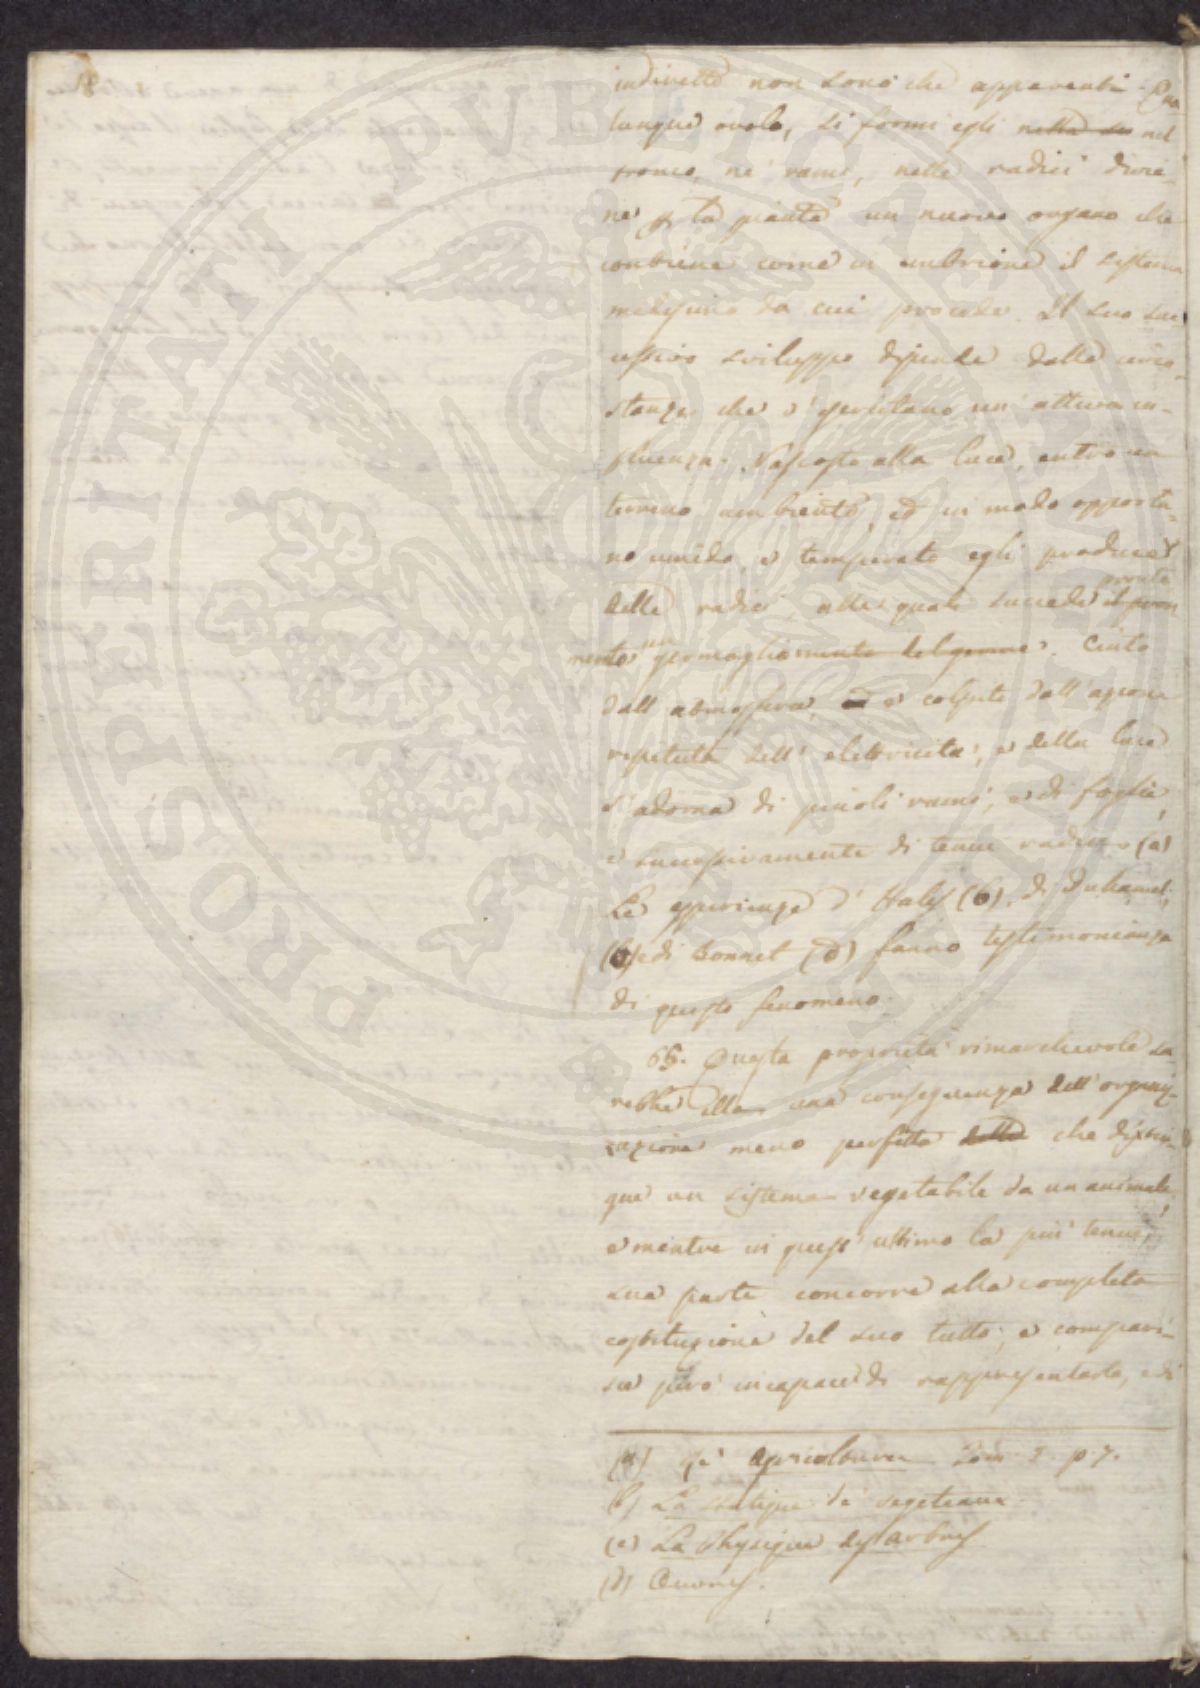 18
indiretto non sono che apparenti. Qua
lunque ovolo, si formi egli nella su nel
tronco, ne' rami, nelle radici divie-
ne p. la pianta un nuovo organo che
contiene come in embrione il sistema
medesimo da cui procede. Il suo suc
cessivo sviluppo dipende dalle circo-
stanze che v'esercitano un' attiva in-
fluenza. Nascosto alla luce, entro un
terreno ambiente, ed in modo opportu-
no umido, e temperato egli produce
delle radici, alle quali succede
pronto
mento un germogliomento del germe. Cinto
dall'atmosfera, ed e colpito dall'azione
ripetuta dell' elettricita', e della luce
s'adorna di piccioli rami, e di foglie,
e successivamente di tenui radici. (a)
Le esperienze d' Hales (b), di Duhamel,
(c) e di Bonnet (d) fanno testimonianza
di questo fenomeno.
65. Questa proprieta' rimarchevole sa-
rebbe ella una conseguenza dell'organiz-
zazione meno perfetta della che distin-
gue un sistema vegetabile da un animale,
e mentre in quest' ultimo la piu' tenue
sua parte concorre alla completa
costituzione del suo tutto, e compari-
sce pero' incapace di rappresentarlo, e di
(a) agricolture Tom. I. p. 7.
(b) La statique de' vegeteaux.
(c) La Physique des Arbres
(d) Œuvres.
PROSPERITATI PUBLICAE